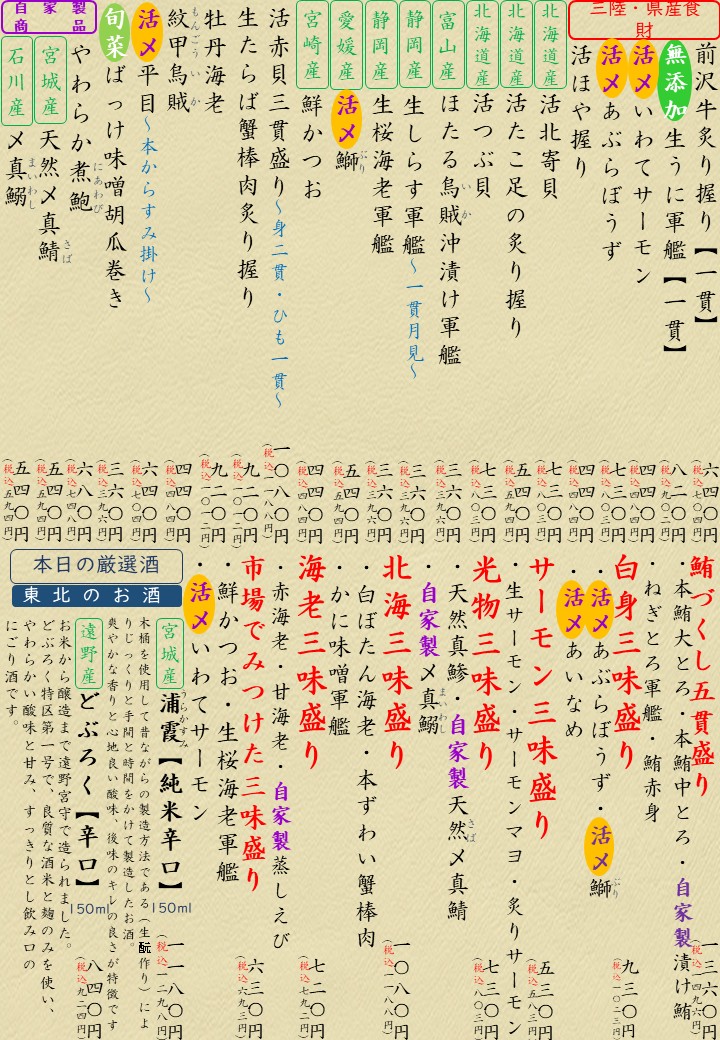 三陸・県産食財
前沢牛炙り握り【一貫】 六四〇円 (税込七〇四円)
無添加 生うに軍艦【一貫】 八二〇円 (税込九〇二円)
活〆 いわてサーモン 四四〇円 (税込四八四円)
活〆 あぶらぼうず 七三〇円 (税込八〇三円)
活ほや握り 四四〇円 (税込四八四円)
北海道産 活北寄貝 七三〇円 (税込八〇三円)
北海道産 活たこ足の炙り握り 五四〇円 (税込五九四円)
北海道産 活つぶ貝 七三〇円 (税込八〇三円)
富山産 ほたる烏賊沖漬け軍艦 三六〇円 (税込三九六円)
いか
静岡産 生しらす軍艦～一貫月見～ 三六〇円 (税込三九六円)
静岡産 生桜海老軍艦 三六〇円 (税込三九六円)
愛媛産 活〆 鰤 五四〇円 (税込五九四円)
ぶり
宮崎産 鮮かつお 四四〇円 (税込四八四円)
活赤貝三貫盛り～身二貫・ひも一貫～ 一〇八〇円 (税込一一八八円)
生たらば蟹棒肉炙り握り 九二〇円 (税込一〇一二円)
牡丹海老 九二〇円 (税込一〇一二円)
紋甲烏賊 四四〇円 (税込四八四円)
もんごういか
活〆 平目～本からすみ掛け～ 六四〇円 (税込七〇四円)
旬菜 ばっけ味噌胡瓜巻き 三六〇円 (税込三九六円)
自家製商品
やわらか煮鮑 六八〇円 (税込七四八円)
にあわび
宮城産 天然〆真鯖 五四〇円 (税込五九四円)
さば
石川産 〆真鰯 五四〇円 (税込五九四円)
まいわし
鮪づくし五貫盛り 一三六〇円 (税込一四九六円)
・本鮪大とろ・本鮪中とろ・自家製漬け鮪
・ねぎとろ軍艦・鮪赤身
白身三味盛り 九三〇円 (税込一〇二三円)
・活〆あぶらぼうず・活〆鰤
ぶり
・活〆あいなめ
サーモン三味盛り 五三〇円 (税込五八三円)
・生サーモン・サーモンマヨ・炙りサーモン
光物三味盛り 七三〇円 (税込八〇三円)
・天然真鯵・自家製天然〆真鯖
さば
・自家製〆真鰯
まいわし
北海三味盛り 一〇八〇円 (税込一一八八円)
・白ぼたん海老・本ずわい蟹棒肉
・かに味噌軍艦
海老三味盛り 七二〇円 (税込七九二円)
・赤海老・甘海老・自家製蒸しえび
市場でみつけた三味盛り 六三〇円 (税込六九三円)
・鮮かつお・生桜海老軍艦
・活〆いわてサーモン
本日の厳選酒
東北のお酒
宮城産 浦霞【純米辛口】 150ml 一一八〇円 (税込一二九八円)
うらかすみ
木桶を使用して昔ながらの製造方法である(生酛作り)によ
りじっくりと手間と時間をかけて製造したお酒。
爽やかな香りと心地良い酸味、後味のキレの良さが特徴です
遠野産 どぶろく【辛口】 150ml 八四〇円 (税込九二四円)
お米から醸造まで遠野宮守で造られました。
どぶろく特区第一号で、良質な酒米と麹のみを使い、
やわらかい酸味と甘み、すっきりとし飲み口の
にごり酒です。